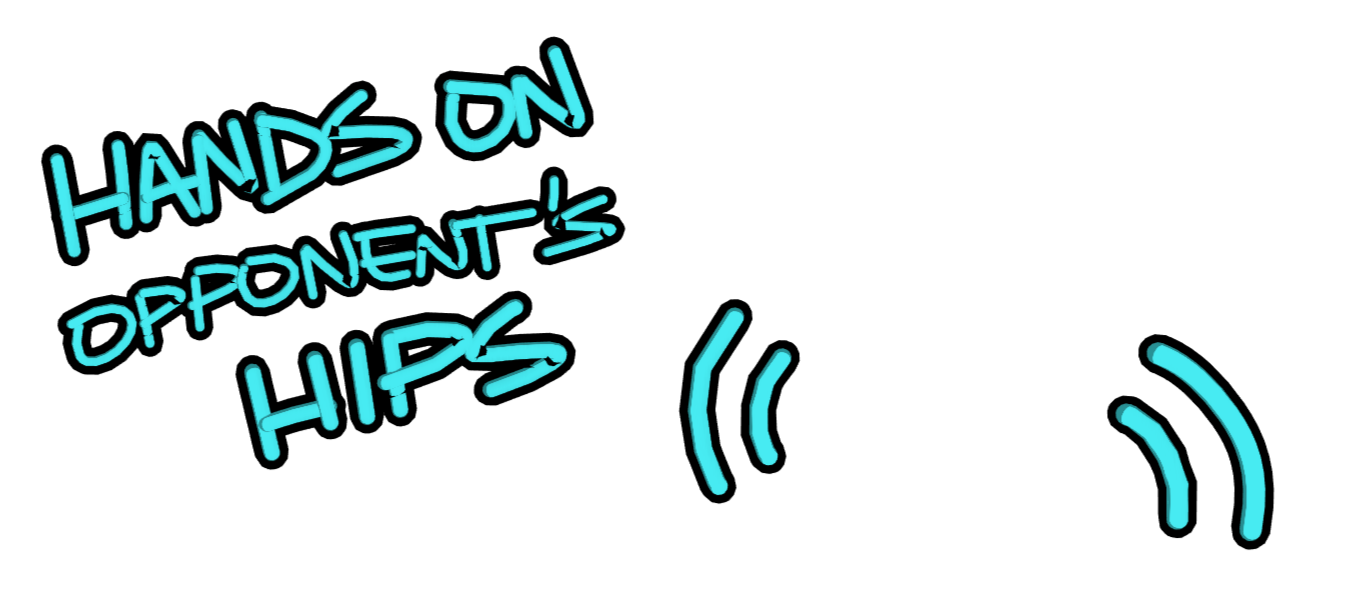 HANDS ON
OPPONENT'S
HIPS